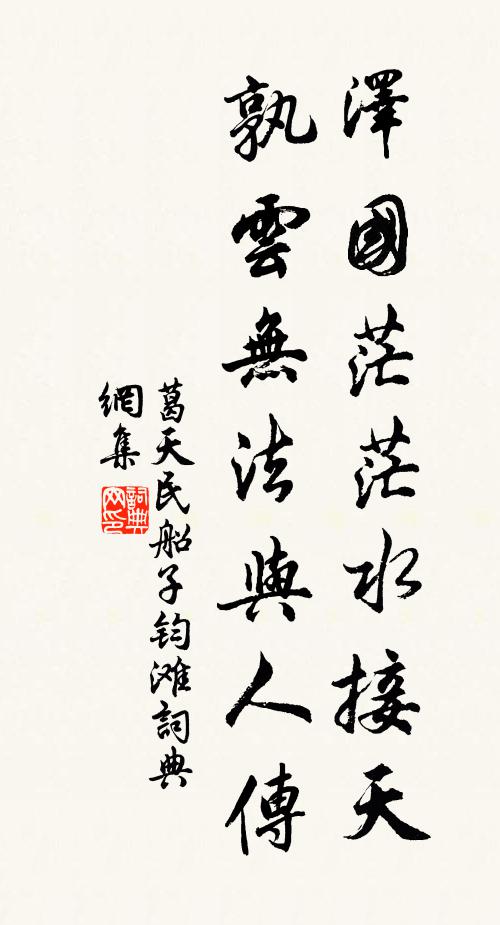 澤國茫茫水接天
孰雲無法與人傳
葛天民船子钓滩詞典
網集
詞典
网印